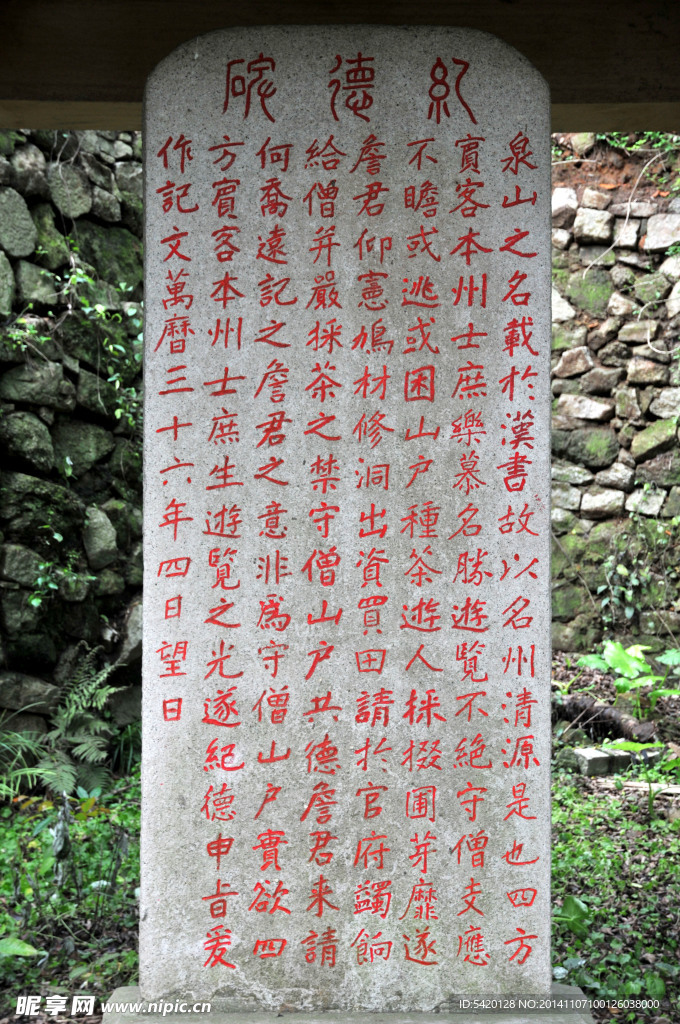 紀德碑
泉山之名載於漢書故以名州清源是也四方
賓客本州士庶樂慕名勝遊覽不絕守僧支應
不贍或逃或困山户種茶遊人採掇圃芽靡遂
詹君仰憲鳩材修洞出資買田請於官府蠲餉
給僧并嚴採茶之禁守僧山户共德詹君来請
何喬遠記之詹君之意非為守僧山户實欲四
方賓客本州士庶生遊覽之光遂紀德申旨爰
作記文萬曆三十六年四日望日
昵享网 www.nipic.cn
ID:5420128 NO:20141107100126038000